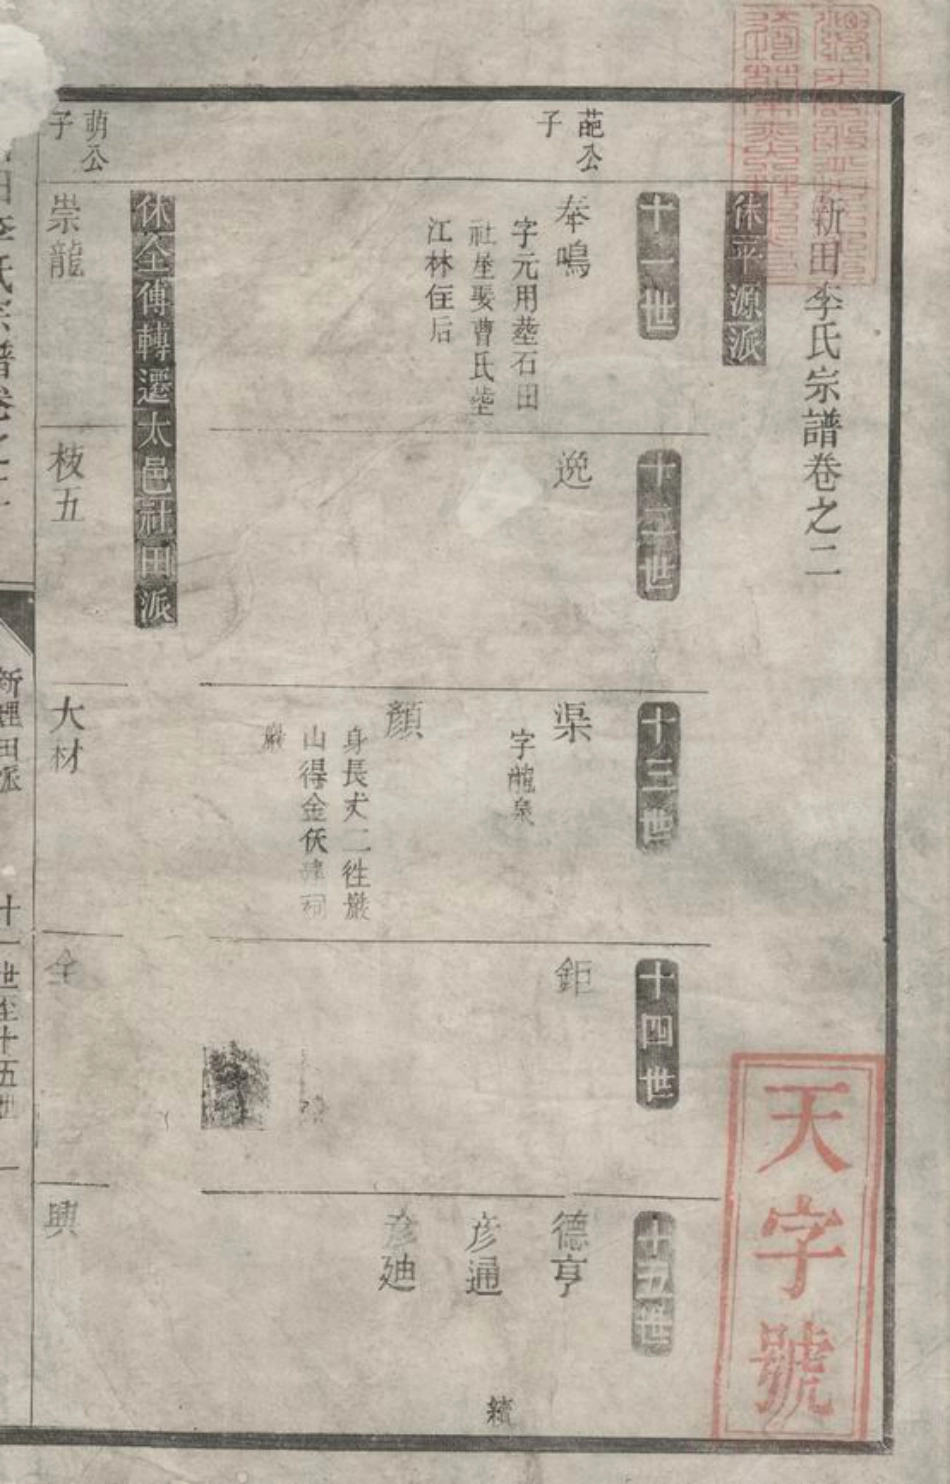 新田李氏宗譜卷之二
休平源派
十一世
葩公
子
奉鳴
字元用塟石田
社屋娶曹氏塟
江林住后
十二世
逸
十三世
渠
字龍泉
顏
身長丈二徃巖
山得金伏建祠
巖
十四世
鉅
十五世
德亨
彥通
彥廸
續
休全傳轉遷太邑社田派
萌公
子
崇龍
枝五
大材
全
興
田李氏宗譜卷之二
新狸田派
十一世至十五世
一
天字號